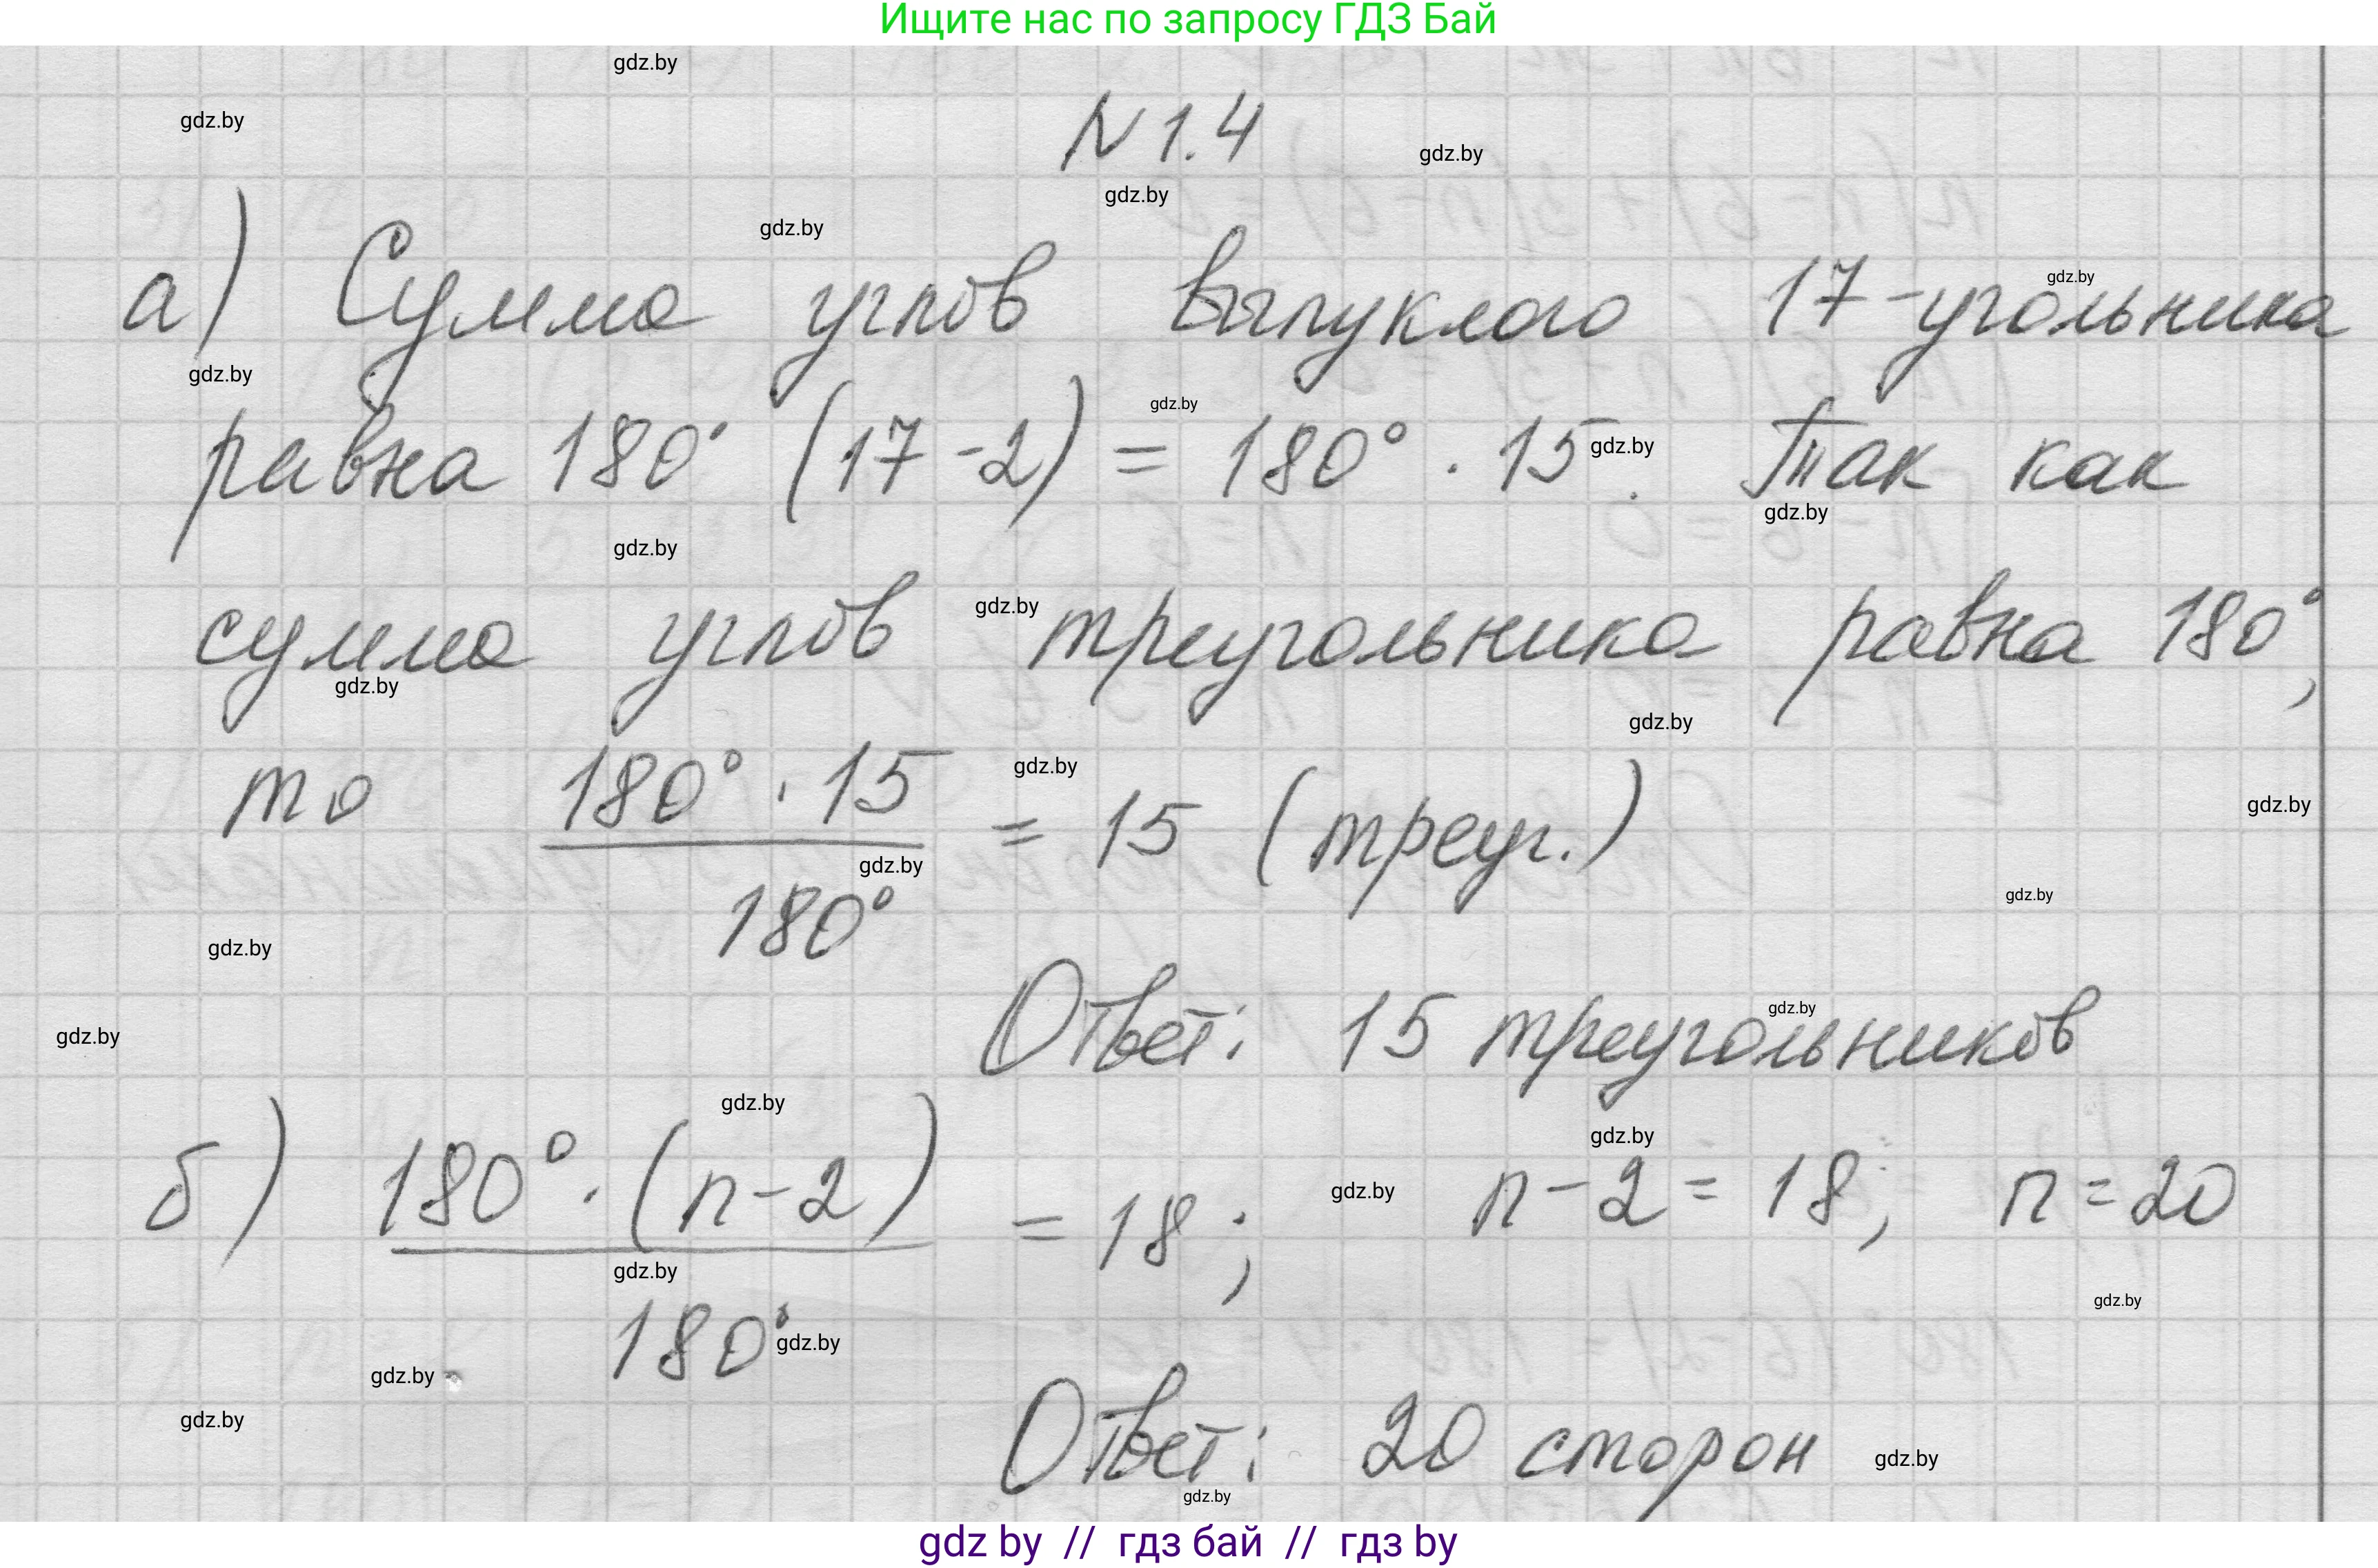 Ищите нас по запросу ГДЗ Бай
gdz.by
gdz.by
N 1.4
gdz.by
gdz.by
gdz.by
а) Сумма углов выпуклого 17-угольника
gdz.by
gdz.by
gdz.by
равна 180° (17-2) = 180° · 15. Так как
gdz.by
gdz.by
gdz.by
gdz.by
сумма углов треугольника равна 180°,
gdz.by
gdz.by
gdz.by
то 180° · 15 / 180° = 15 (треуг.)
gdz.by
gdz.by
gdz.by
gdz.by
Ответ: 15 треугольников
gdz.by
gdz.by
gdz.by
gdz.by
б) 180° · (n-2) / 180° = 18; n-2 = 18; n = 20
gdz.by
gdz.by
gdz.by
gdz.by
gdz.by
gdz.by
Ответ: 20 сторон
gdz.by
gdz.by
gdz by // гдз бай // гдз by